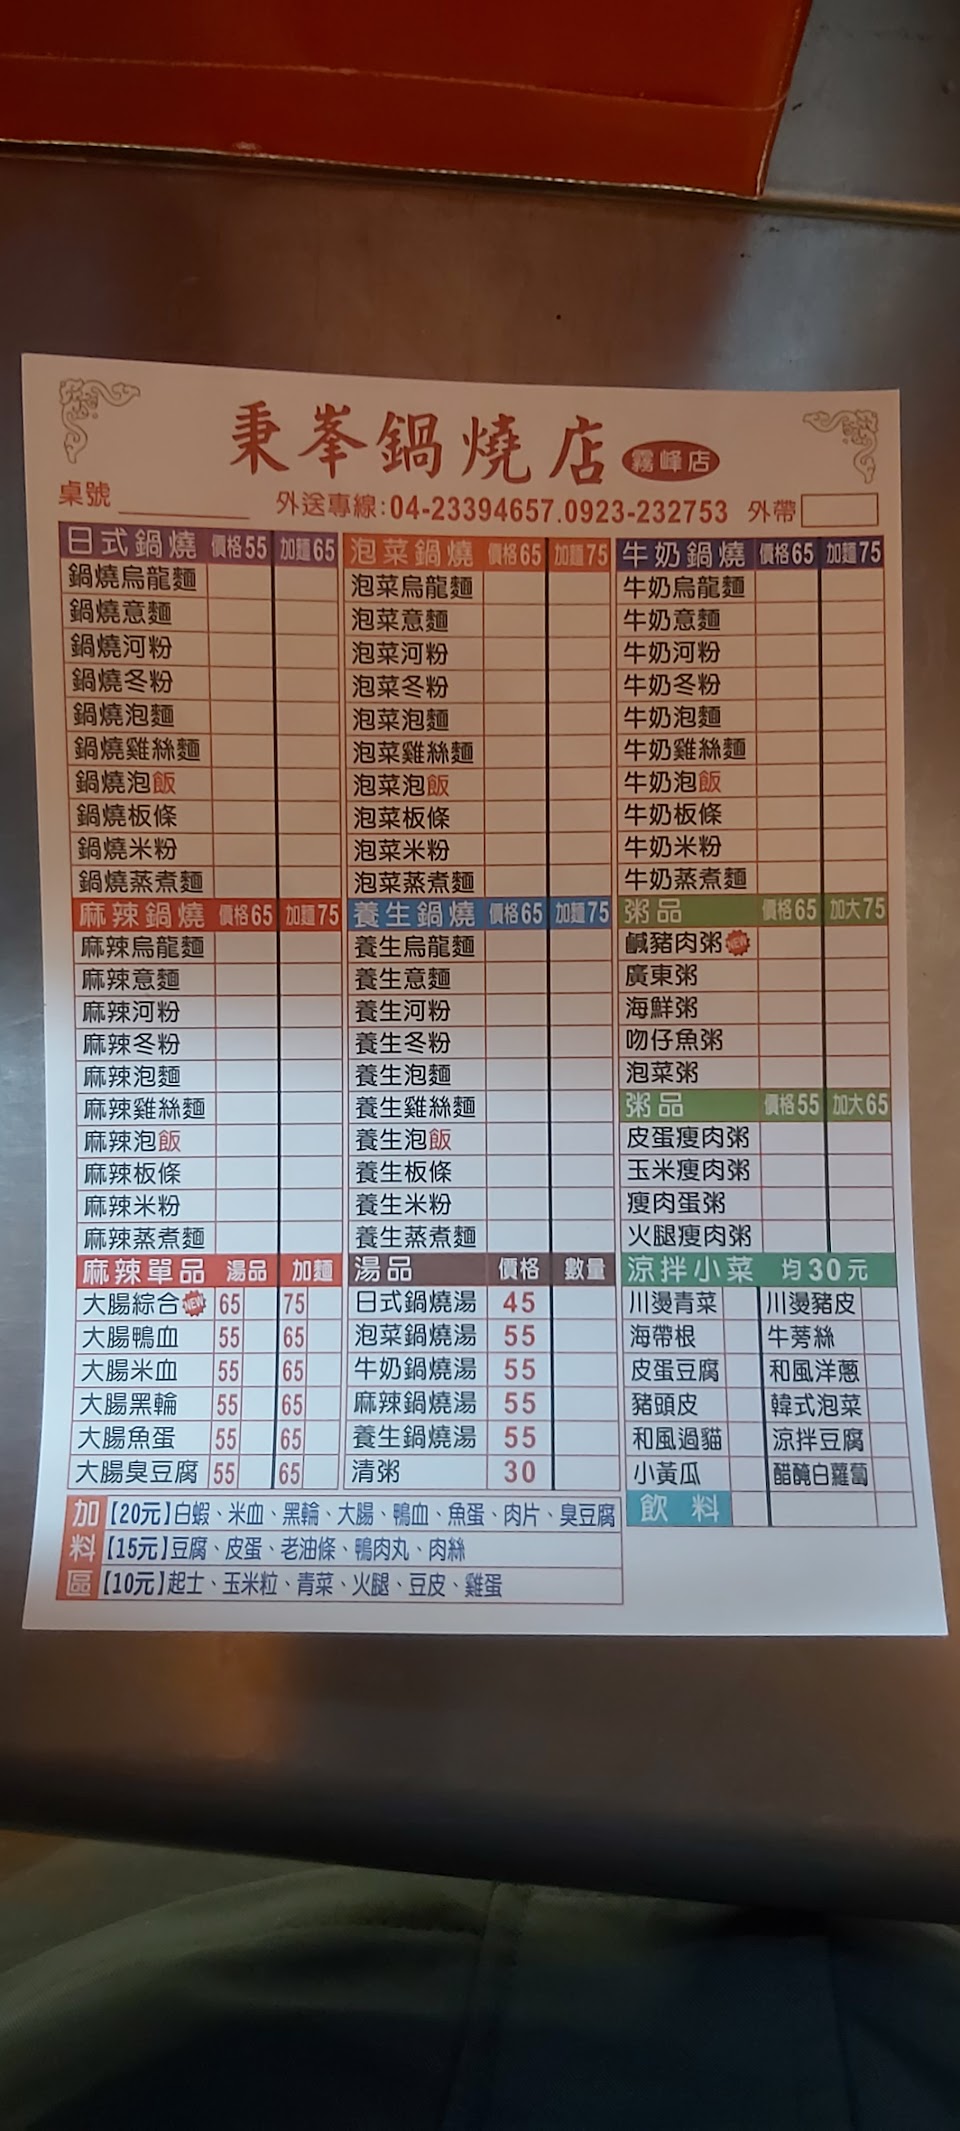 秉峯鍋燒店 霧峰店
桌號 外送專線:04-23394657.0923-232753 外帶
日式鍋燒 價格55 加麵65
鍋燒烏龍麵
鍋燒意麵
鍋燒河粉
鍋燒冬粉
鍋燒泡麵
鍋燒雞絲麵
鍋燒泡飯
鍋燒板條
鍋燒米粉
鍋燒蒸煮麵
泡菜鍋燒 價格65 加麵75
泡菜烏龍麵
泡菜意麵
泡菜河粉
泡菜冬粉
泡菜泡麵
泡菜雞絲麵
泡菜泡飯
泡菜板條
泡菜米粉
泡菜蒸煮麵
牛奶鍋燒 價格65 加麵75
牛奶烏龍麵
牛奶意麵
牛奶河粉
牛奶冬粉
牛奶泡麵
牛奶雞絲麵
牛奶泡飯
牛奶板條
牛奶米粉
牛奶蒸煮麵
麻辣鍋燒 價格65 加麵75
麻辣烏龍麵
麻辣意麵
麻辣河粉
麻辣冬粉
麻辣泡麵
麻辣雞絲麵
麻辣泡飯
麻辣板條
麻辣米粉
麻辣蒸煮麵
養生鍋燒 價格65 加麵75
養生烏龍麵
養生意麵
養生河粉
養生冬粉
養生泡麵
養生雞絲麵
養生泡飯
養生板條
養生米粉
養生蒸煮麵
粥品 價格65 加大75
鹹豬肉粥 NEW
廣東粥
海鮮粥
吻仔魚粥
泡菜粥
粥品 價格55 加大65
皮蛋瘦肉粥
玉米瘦肉粥
瘦肉蛋粥
火腿瘦肉粥
麻辣單品 湯品 加麵
大腸綜合 NEW 65 75
大腸鴨血 55 65
大腸米血 55 65
大腸黑輪 55 65
大腸魚蛋 55 65
大腸臭豆腐 55 65
湯品 價格 數量
日式鍋燒湯 45
泡菜鍋燒湯 55
牛奶鍋燒湯 55
麻辣鍋燒湯 55
養生鍋燒湯 55
清粥 30
涼拌小菜 均30元
川燙青菜 川燙豬皮
海帶根 牛蒡絲
皮蛋豆腐 和風洋蔥
豬頭皮 韓式泡菜
和風過貓 涼拌豆腐
小黃瓜 醋醃白蘿蔔
飲料
加料區
【20元】白蝦、米血、黑輪、大腸、鴨血、魚蛋、肉片、臭豆腐
【15元】豆腐、皮蛋、老油條、鴨肉丸、肉絲
【10元】起士、玉米粒、青菜、火腿、豆皮、雞蛋